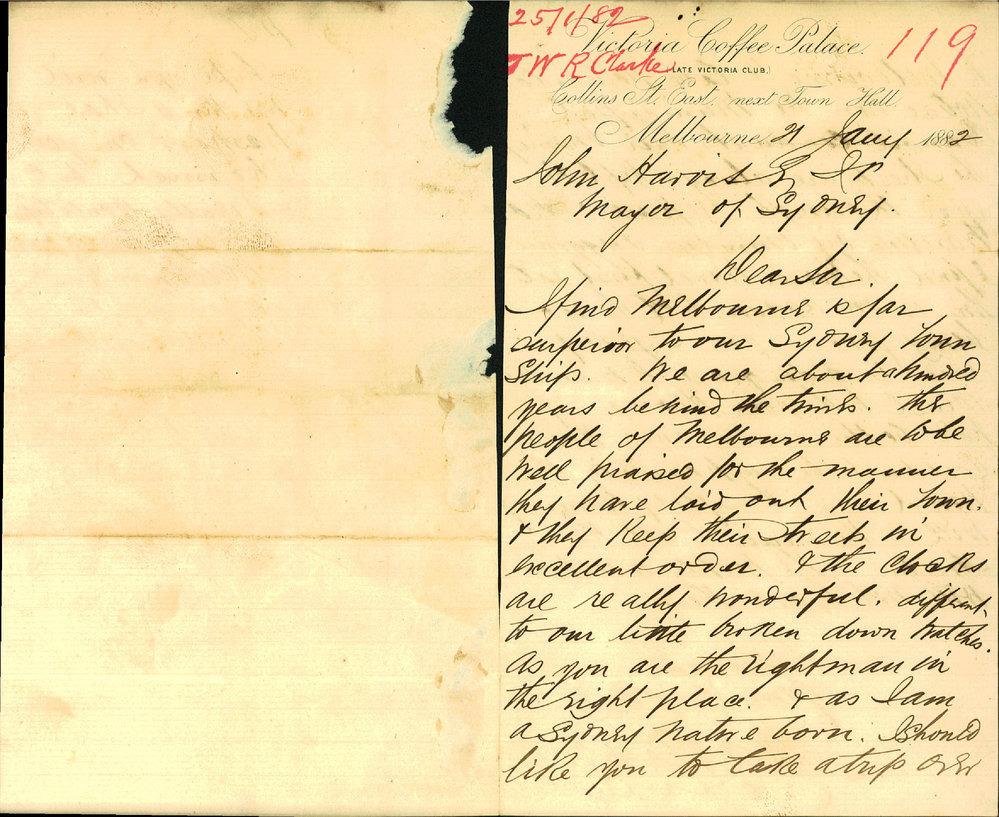 25/1/82
Victoria Coffee Palace. 119
J W R Clarke
(LATE VICTORIA CLUB.)
Collins St. East, next Town Hall.
Melbourne, 21 Jany 1882
John Harris Esqr
Mayor of Sydney.
Dear Sir.
I find Melbourne is far
surperior to our Sydney Town
Ship. We are about a hundred
years behind the times. The
people of Melbourne are to be
well praised for the manner
they have laid out their Town.
& they keep their streets in
excellent order. & the Clocks
are really wonderful. different
to our little broken down watches.
As you are the right man in
the right place. & as I am
a Sydney native born. I should
like you to take a trip over